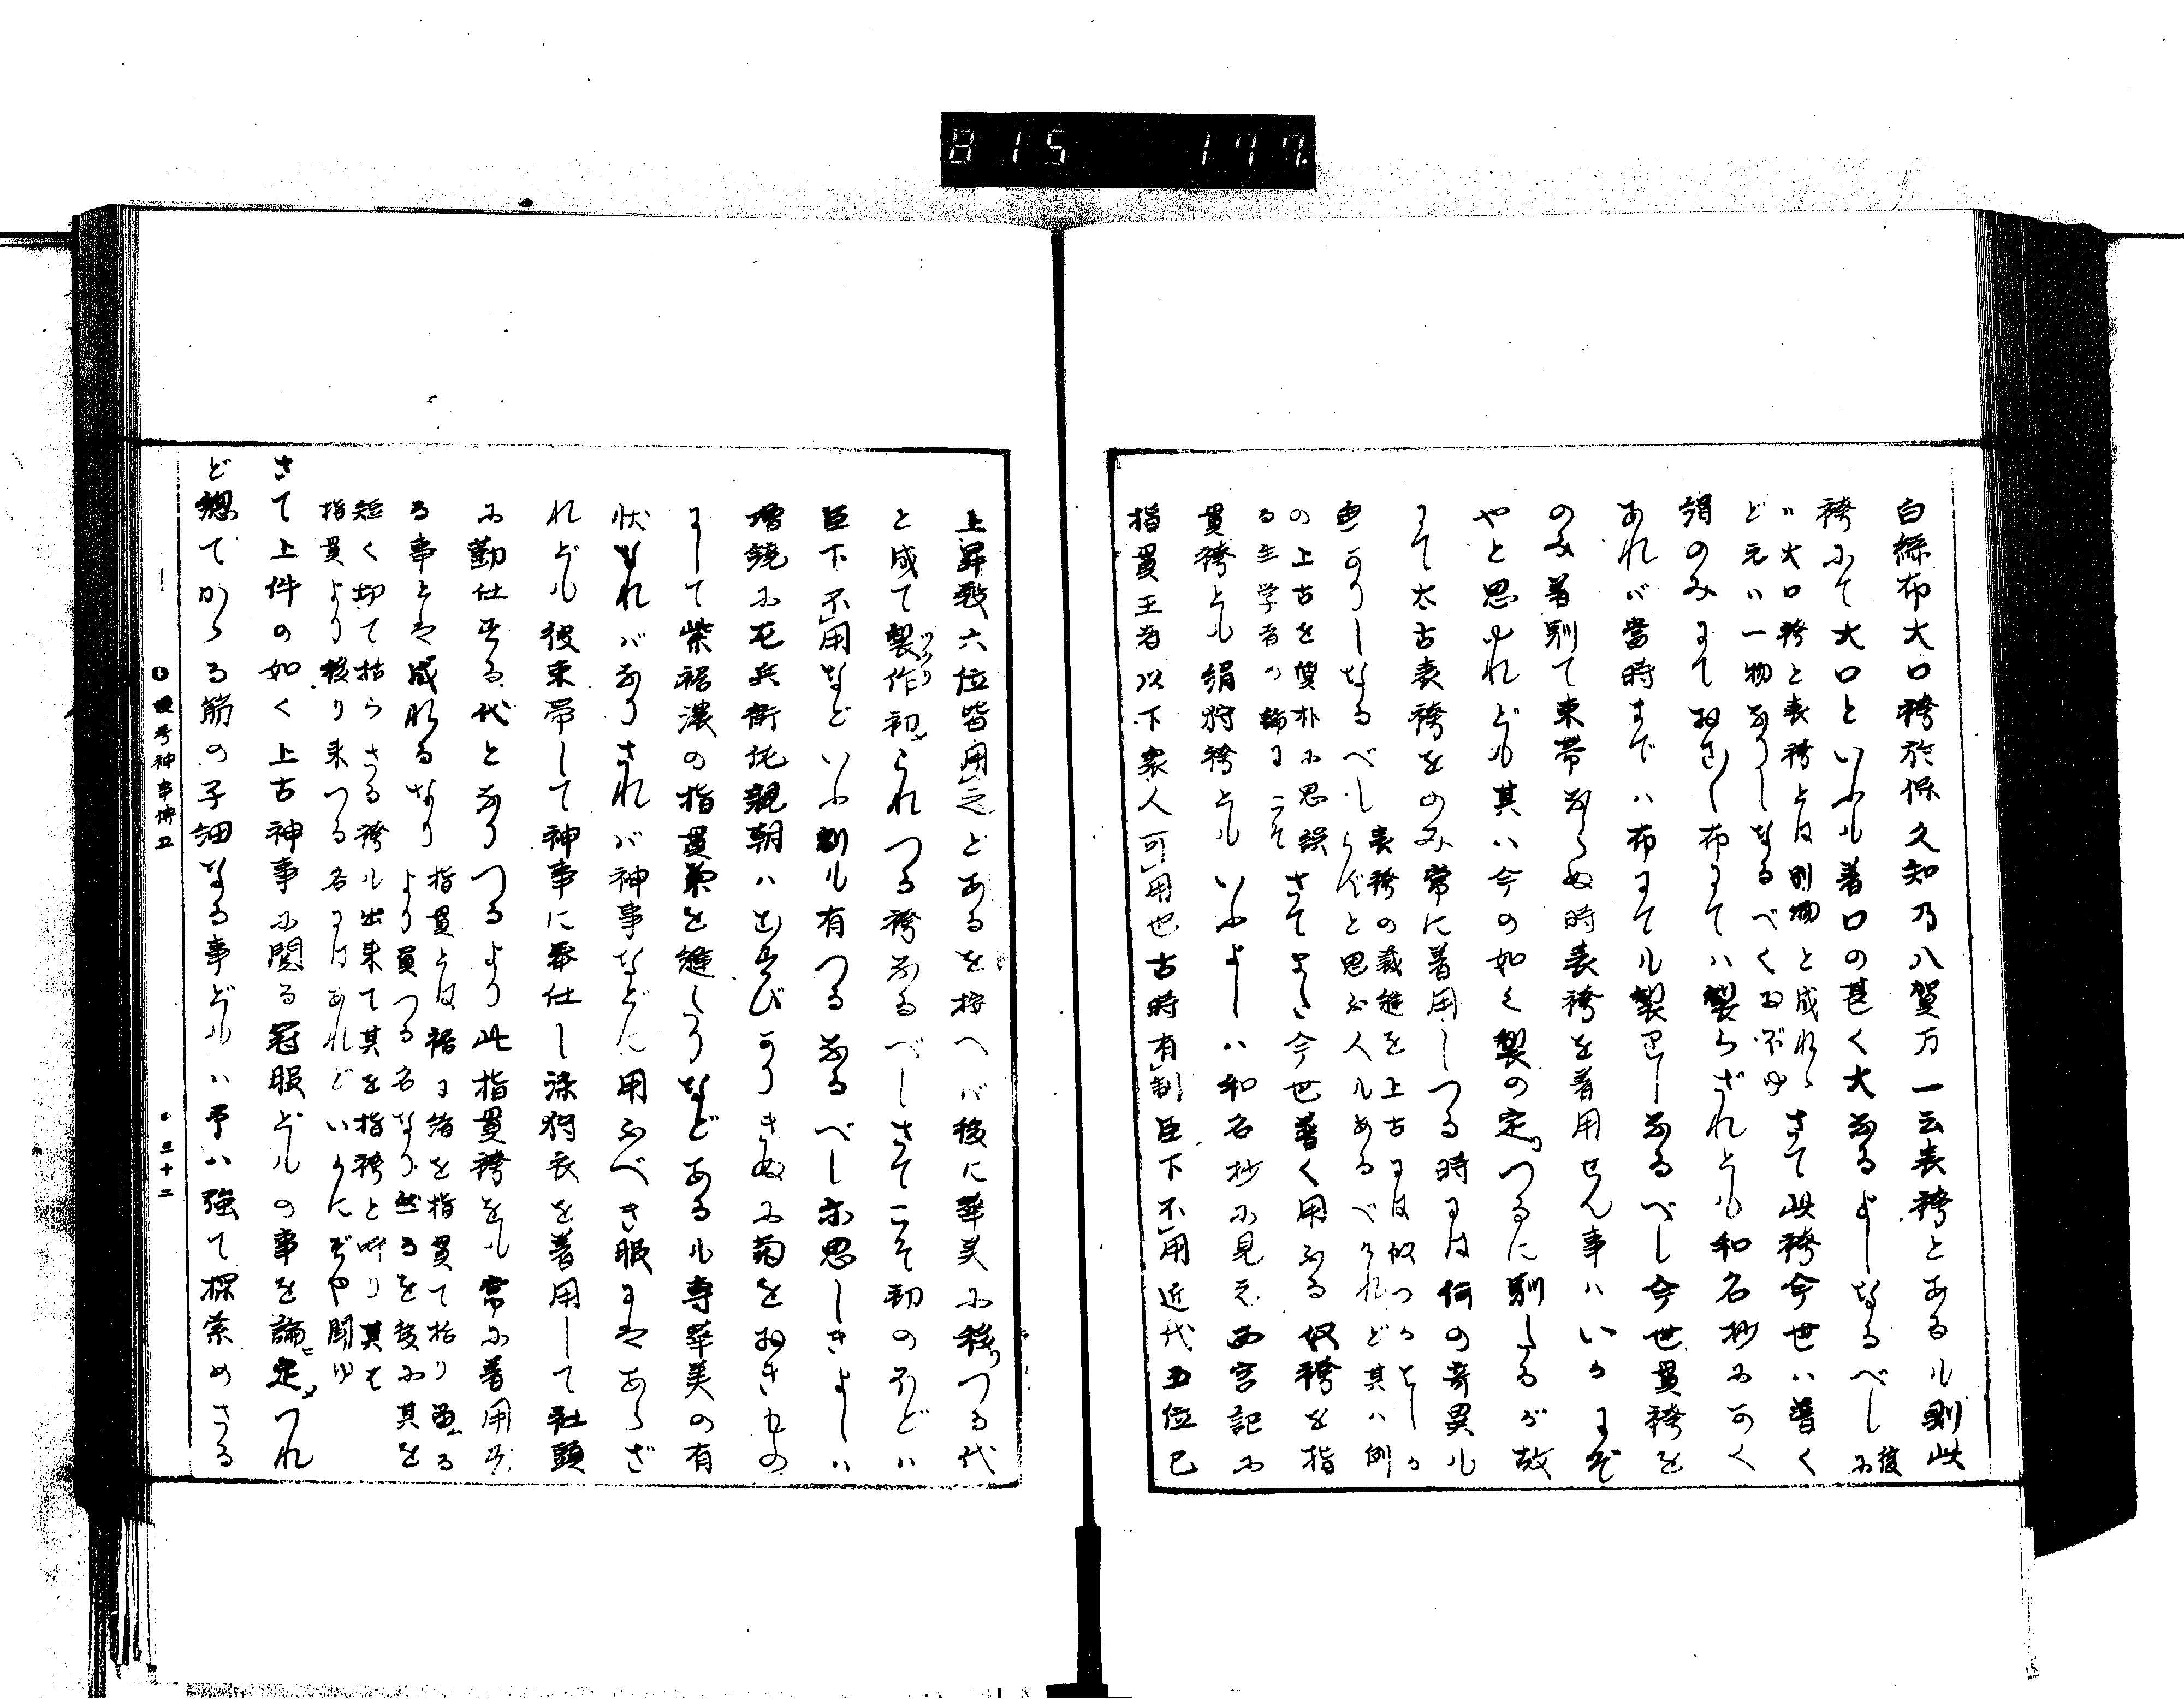 815 177
白絲布大口袴於保久知乃八賀万一云表袴とあるル則此
袴ふて大口といふル着口の甚く大なるよしなるべし後ふ
ハ大口袴と表袴とは別物と成れゝ
ど元ハ一物なりしなるべくおぼゆ
さて此袴今世ハ普く
絹のみにておむし布にてハ製らざれども和名抄ふかく
あれバ當時までハ布にてル製りしなるべし今世貫袴を
のみ着馴て束帯ならぬ時表袴を着用せん事ハいかにぞ
やと思ゆれどル其ハ今の如く製の定つるに馴たるが故
にて太古表袴をのみ常に着用しつる時には何の奇異ル
無かりしなるべし
表袴の裁縫を上古には似つかし
らずと思ふ人ルあるべけれど其ハ例
の上古を質朴ふ思誤
る生学者の論にこそ
さてまた今世普く用ふる奴袴を指
貫袴とル絹狩袴とルいふよしハ和名抄ふ見え西宮記ふ
指貫王者以下衆人可用也古時有制臣下不用近代五位已
上昇殿六位皆用之とあるを按へバ後に華美ふ移つる代
と成て製作初られつる袴なるべしさてこそ初のほどハ
ツクリ
臣下不用などいふ制ル有つるなるべし亦思しきよしハ
増鏡ふ右兵衛
ふ菊をおきもの
にして紫裾濃の指貫菊を縫たりなどあるル専華美の有
状なれバなりされバ神事などに用ふべき服にはあらざ
れどル彼束帯して神事に奉仕し深狩衣を着用して社頭
ふ勤仕する代となりつるより此指貫袴をル常ふ着用す
る事とは成れるなり
指貫とは裾に緒を指貫て括り着る
より負つる名なり然るを後ふ其を
短く切て括らさる袴ル出来て其を指袴と呼り其も
指貫より移り来つる名にはあれどいかにぞや聞ゆ
さて上件の如く上古神事ふ關る冠服どルの事を論定つれ
ど總てかゝる筋の子細なる事どルハ予ハ強て探索めさる
神事
三十二